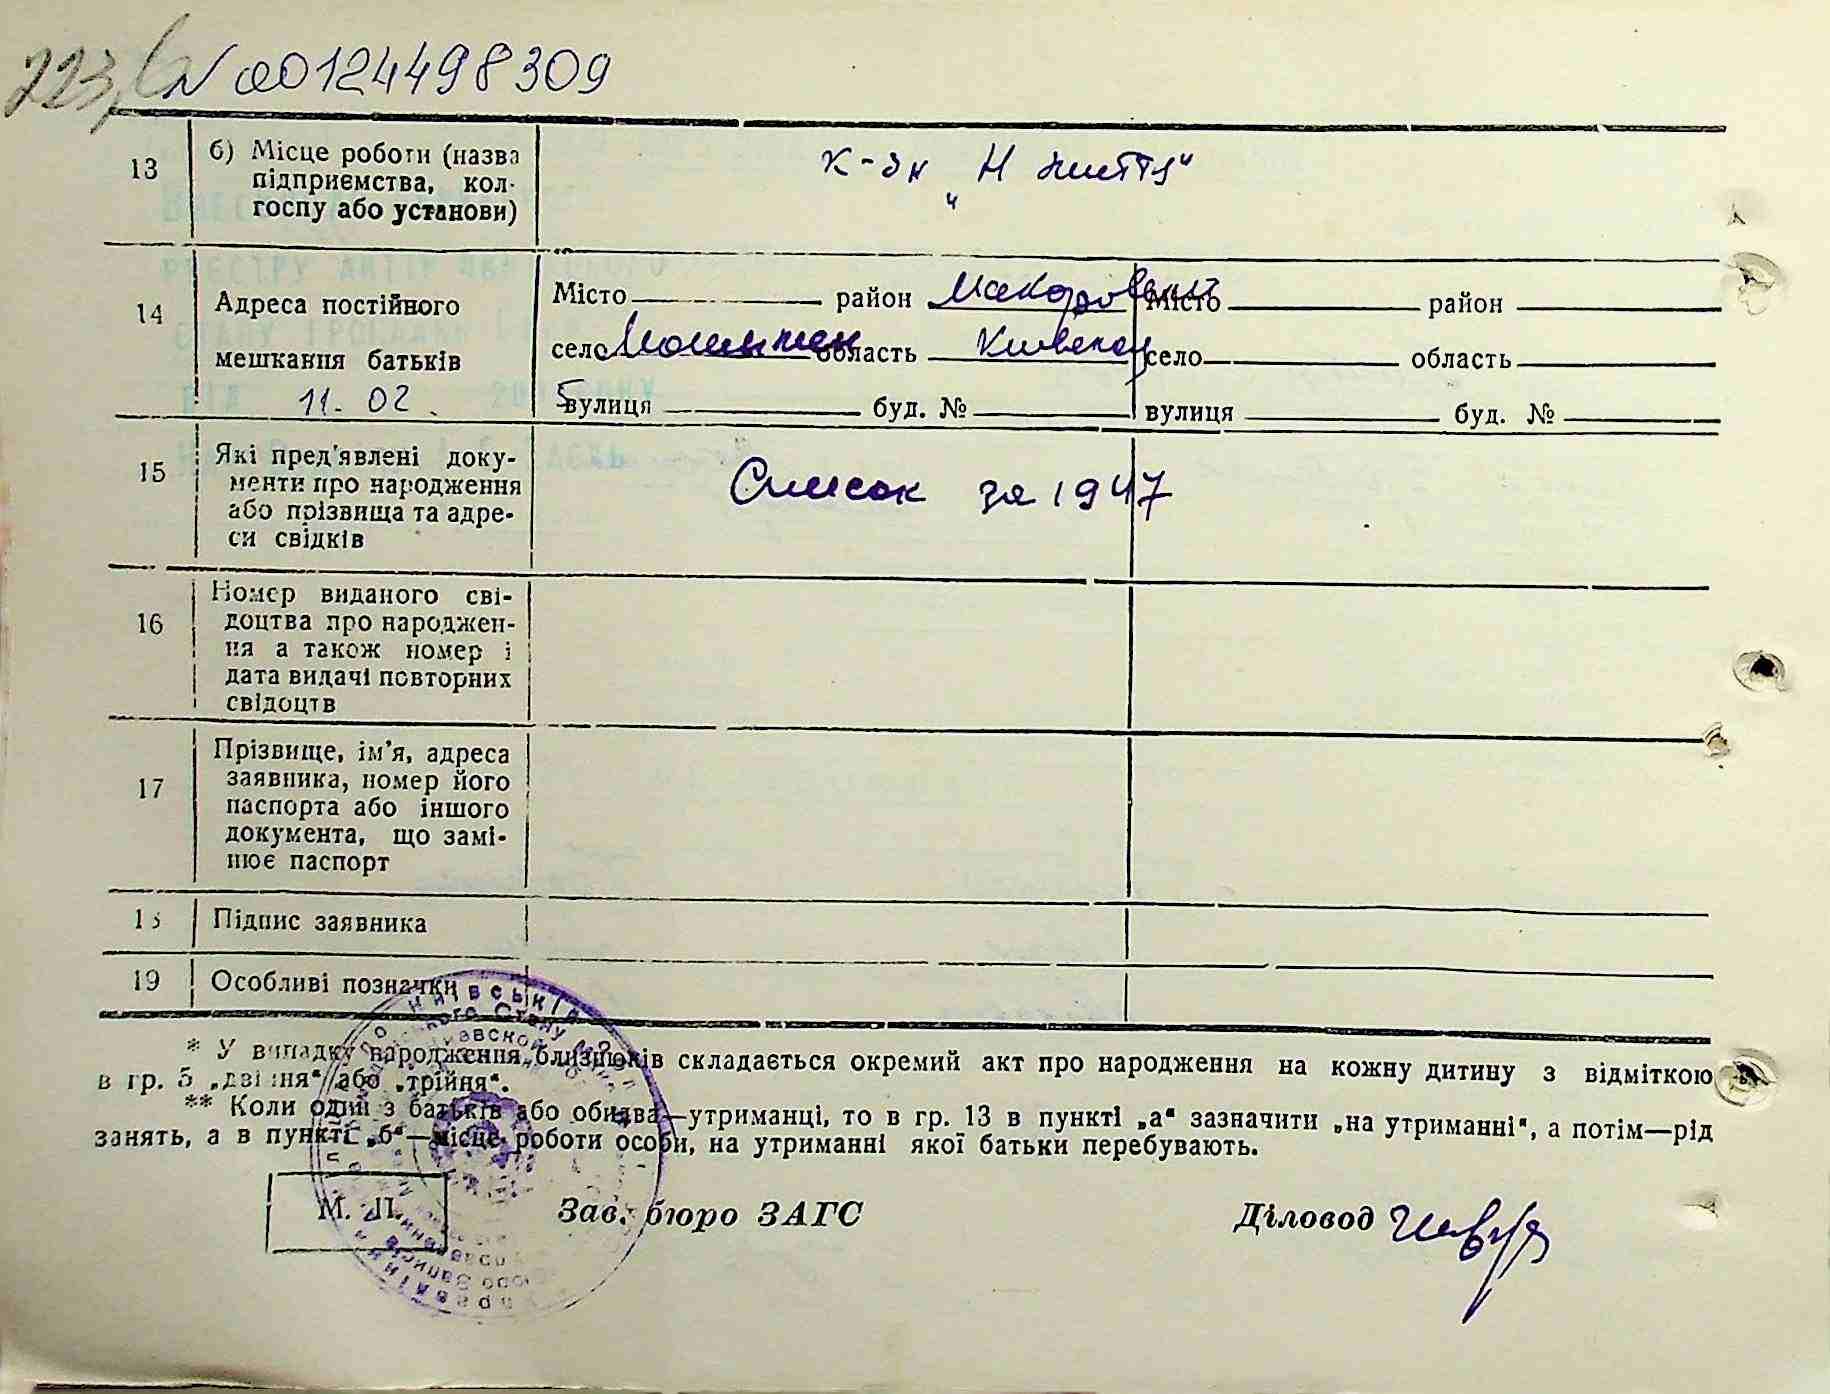 223,6 N 00124498309
13
б) Місце роботи (назва
підприємства, кол-
госпу або установи)
К-зн „Н життя“
14
Адреса постійного
мешкання батьків
11. 02. 5
Місто район Макаровськ
село область Київська
вулиця буд. №
Місто район
село область
вулиця буд. №
15
Які пред'явлені доку-
менти про народження
або прізвища та адре-
си свідків
Список за 1947
16
Номер виданого сві-
доцтва про народжен-
ня а також номер і
дата видачі повторних
свідоцтв
17
Прізвище, ім'я, адреса
заявника, номер його
паспорта або іншого
документа, що замі-
нює паспорт
18
Підпис заявника
19
Особливі позначки
* У випадку народження близнюків складається окремий акт про народження на кожну дитину з відміткою
в гр. 5 „двійня“ або „трійня“.
** Коли один з батьків або обидва—утриманці, то в гр. 13 в пункті „а“ зазначити „на утриманні“, а потім—рід
занять, а в пункті „б“—місце роботи особи, на утриманні якої батьки перебувають.
М. П.
Зав. бюро ЗАГС
Діловод